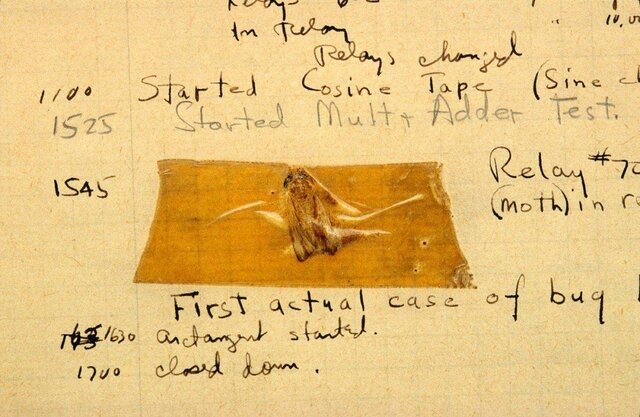 Relays
10,00
in Relay
Relays changed
1100 Started Cosine Tape (Sine c
1525 Started Mult + Adder Test.
1545 Relay #70
(moth) in re
First actual case of bug
1630 arctangent started.
1700 closed down.